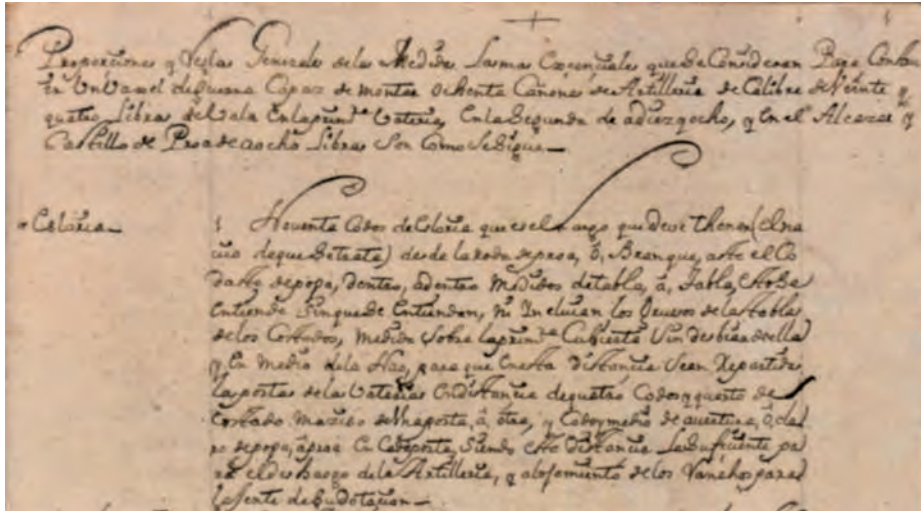 Proporciones y Reglas Generales de las Medidas Las mas Esenciales que se Consideran Para Constru
ir Un Vaxel de guerra Capaz de montar ochenta Cañones de Artilleria de Calibre de Veinte y
quatro Libras de Vala En la prim.ra Vateria, En la Segunda de a diez y ocho, y En el Alcazar y
Castillo de Proa de a ocho Libras Son Como Se Sigue
Esloria 1 Noventa Codos de Esloria que es el Largo que deve thener (el na
vio de que Se trata) desde la roda de proa, ô, Branque, aste el Co
daste de popa, dentro, adentro Medidos de tabla, â, tabla, esto Se
Entiende Sin que Se Entiendan, ni Incluian los Gruesos de las tablas
de los Costados, Medida Sobre la prim.ra Cubierta Sin desbiar de ella
y En medio de la Nao, para que En esta distancia Sean Repartidas
las portas de las Vaterias En distancia de quatro Codos y quarto de
Costado Macizo de Una porta, â, otra, y Codo y medio de avertura, ô, cla
ro de popa, â proa En Cada porta, Siendo esta distancia La Suficiente pa
ra el des baogo de la Artilleria, y alojamiento de los Ranchos para
la Jente de Su dotacion